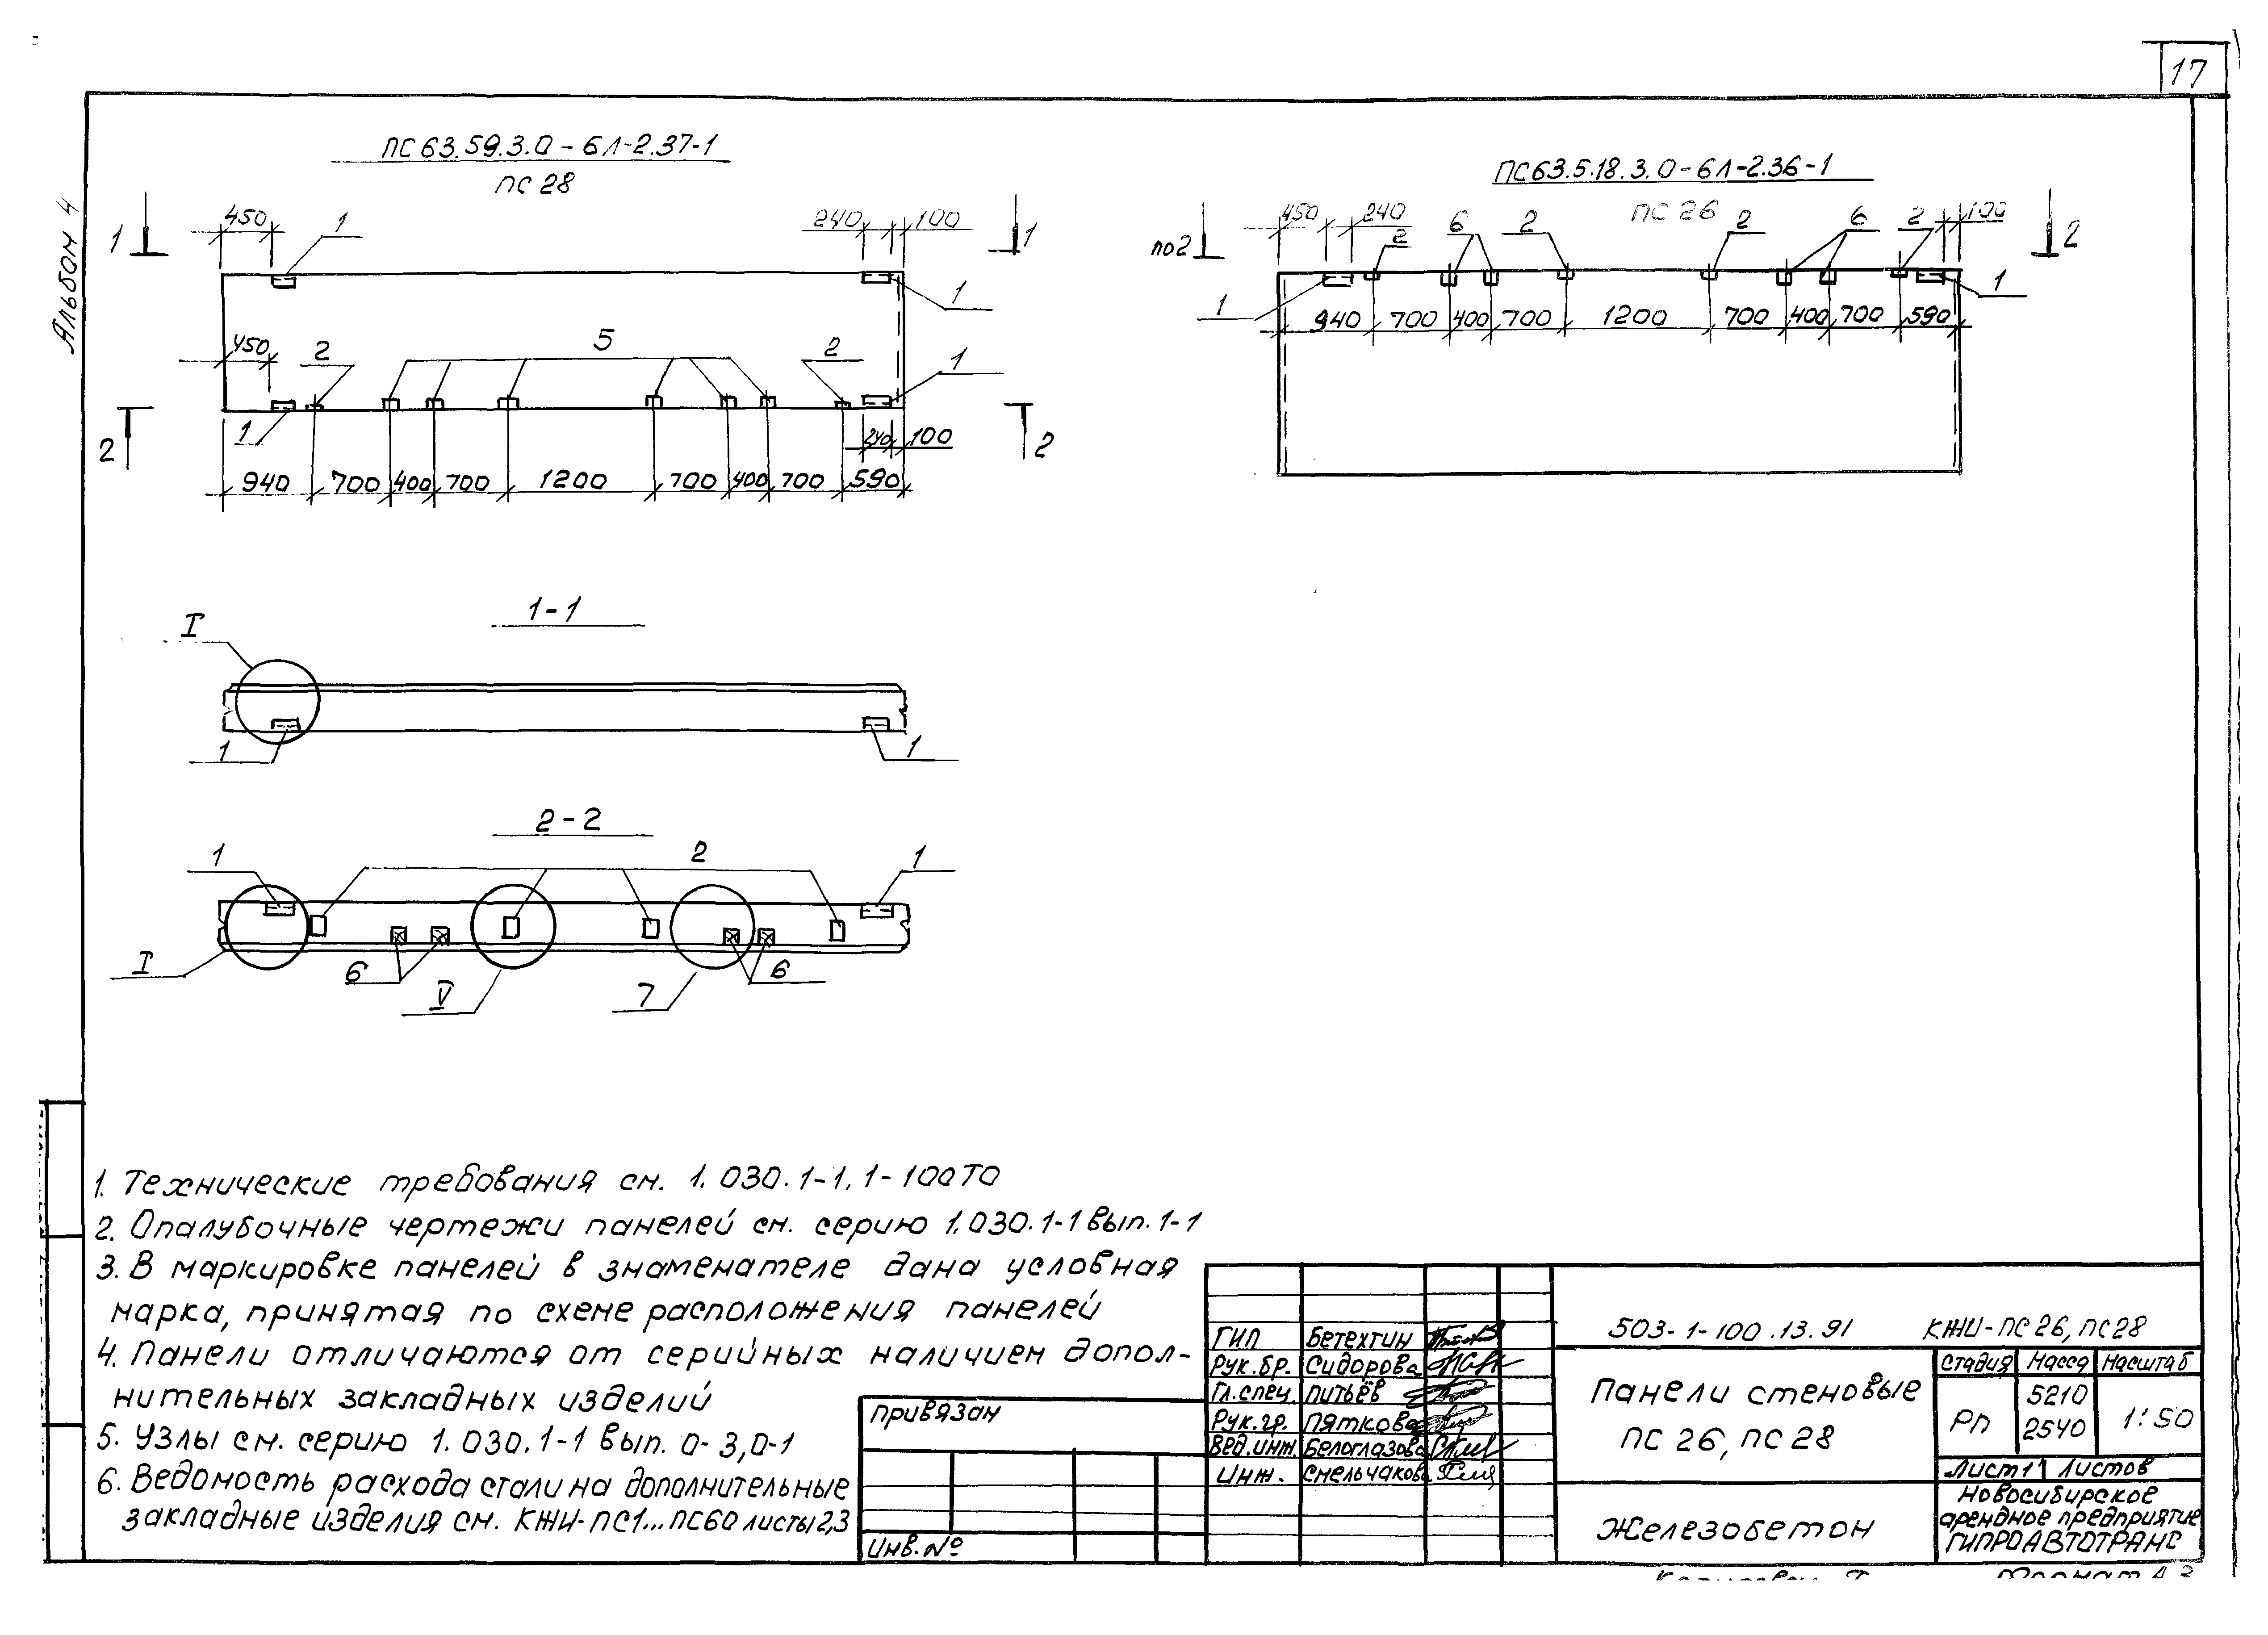 17
Альбом 4
ПС63.59.3.0-6Л-2.37-1
ПС 28
1 450 1 240 100 1
1
450 2 5 2 1
2 1 240 100 2
940 700 400 700 1200 700 400 700 590
ПС63.5.18.3.0-6Л-2.36-1
ПС 26
по2 450 240 2 6 2 2 6 2 100 2
1 1
940 700 400 700 1200 700 400 700 590
1-1
I
1 1
2-2
1 2 1
I 6 V 7 6
1. Технические требования см. 1.030.1-1.1-100ТО
2. Опалубочные чертежи панелей см. серию 1.030.1-1 вып. 1-1
3. В маркировке панелей в знаменателе дана условная
марка, принятая по схеме расположения панелей
4. Панели отличаются от серийных наличием допол-
нительных закладных изделий
5. Узлы см. серию 1.030.1-1 вып. 0-3,0-1
6. Ведомость расхода стали на дополнительные
закладные изделия см. КЖИ-ПС1...ПС60 листы 2,3
привязан
Инв. №
ГИП Бетехтин
Рук.бр. Сидорова
Гл.спец. Питьёв
Рук.гр. Пяткова
Вед.инж. Белоглазова
Инж. Смельчакова
503-1-100.13.91 КЖИ-ПС26, ПС28
Панели стеновые
ПС 26, ПС 28
Стадия Масса Масштаб
РП 5210 1:50
2540
Лист 1 Листов
Железобетон
Новосибирское
арендное предприятие
ГИПРОАВТОТРАНС